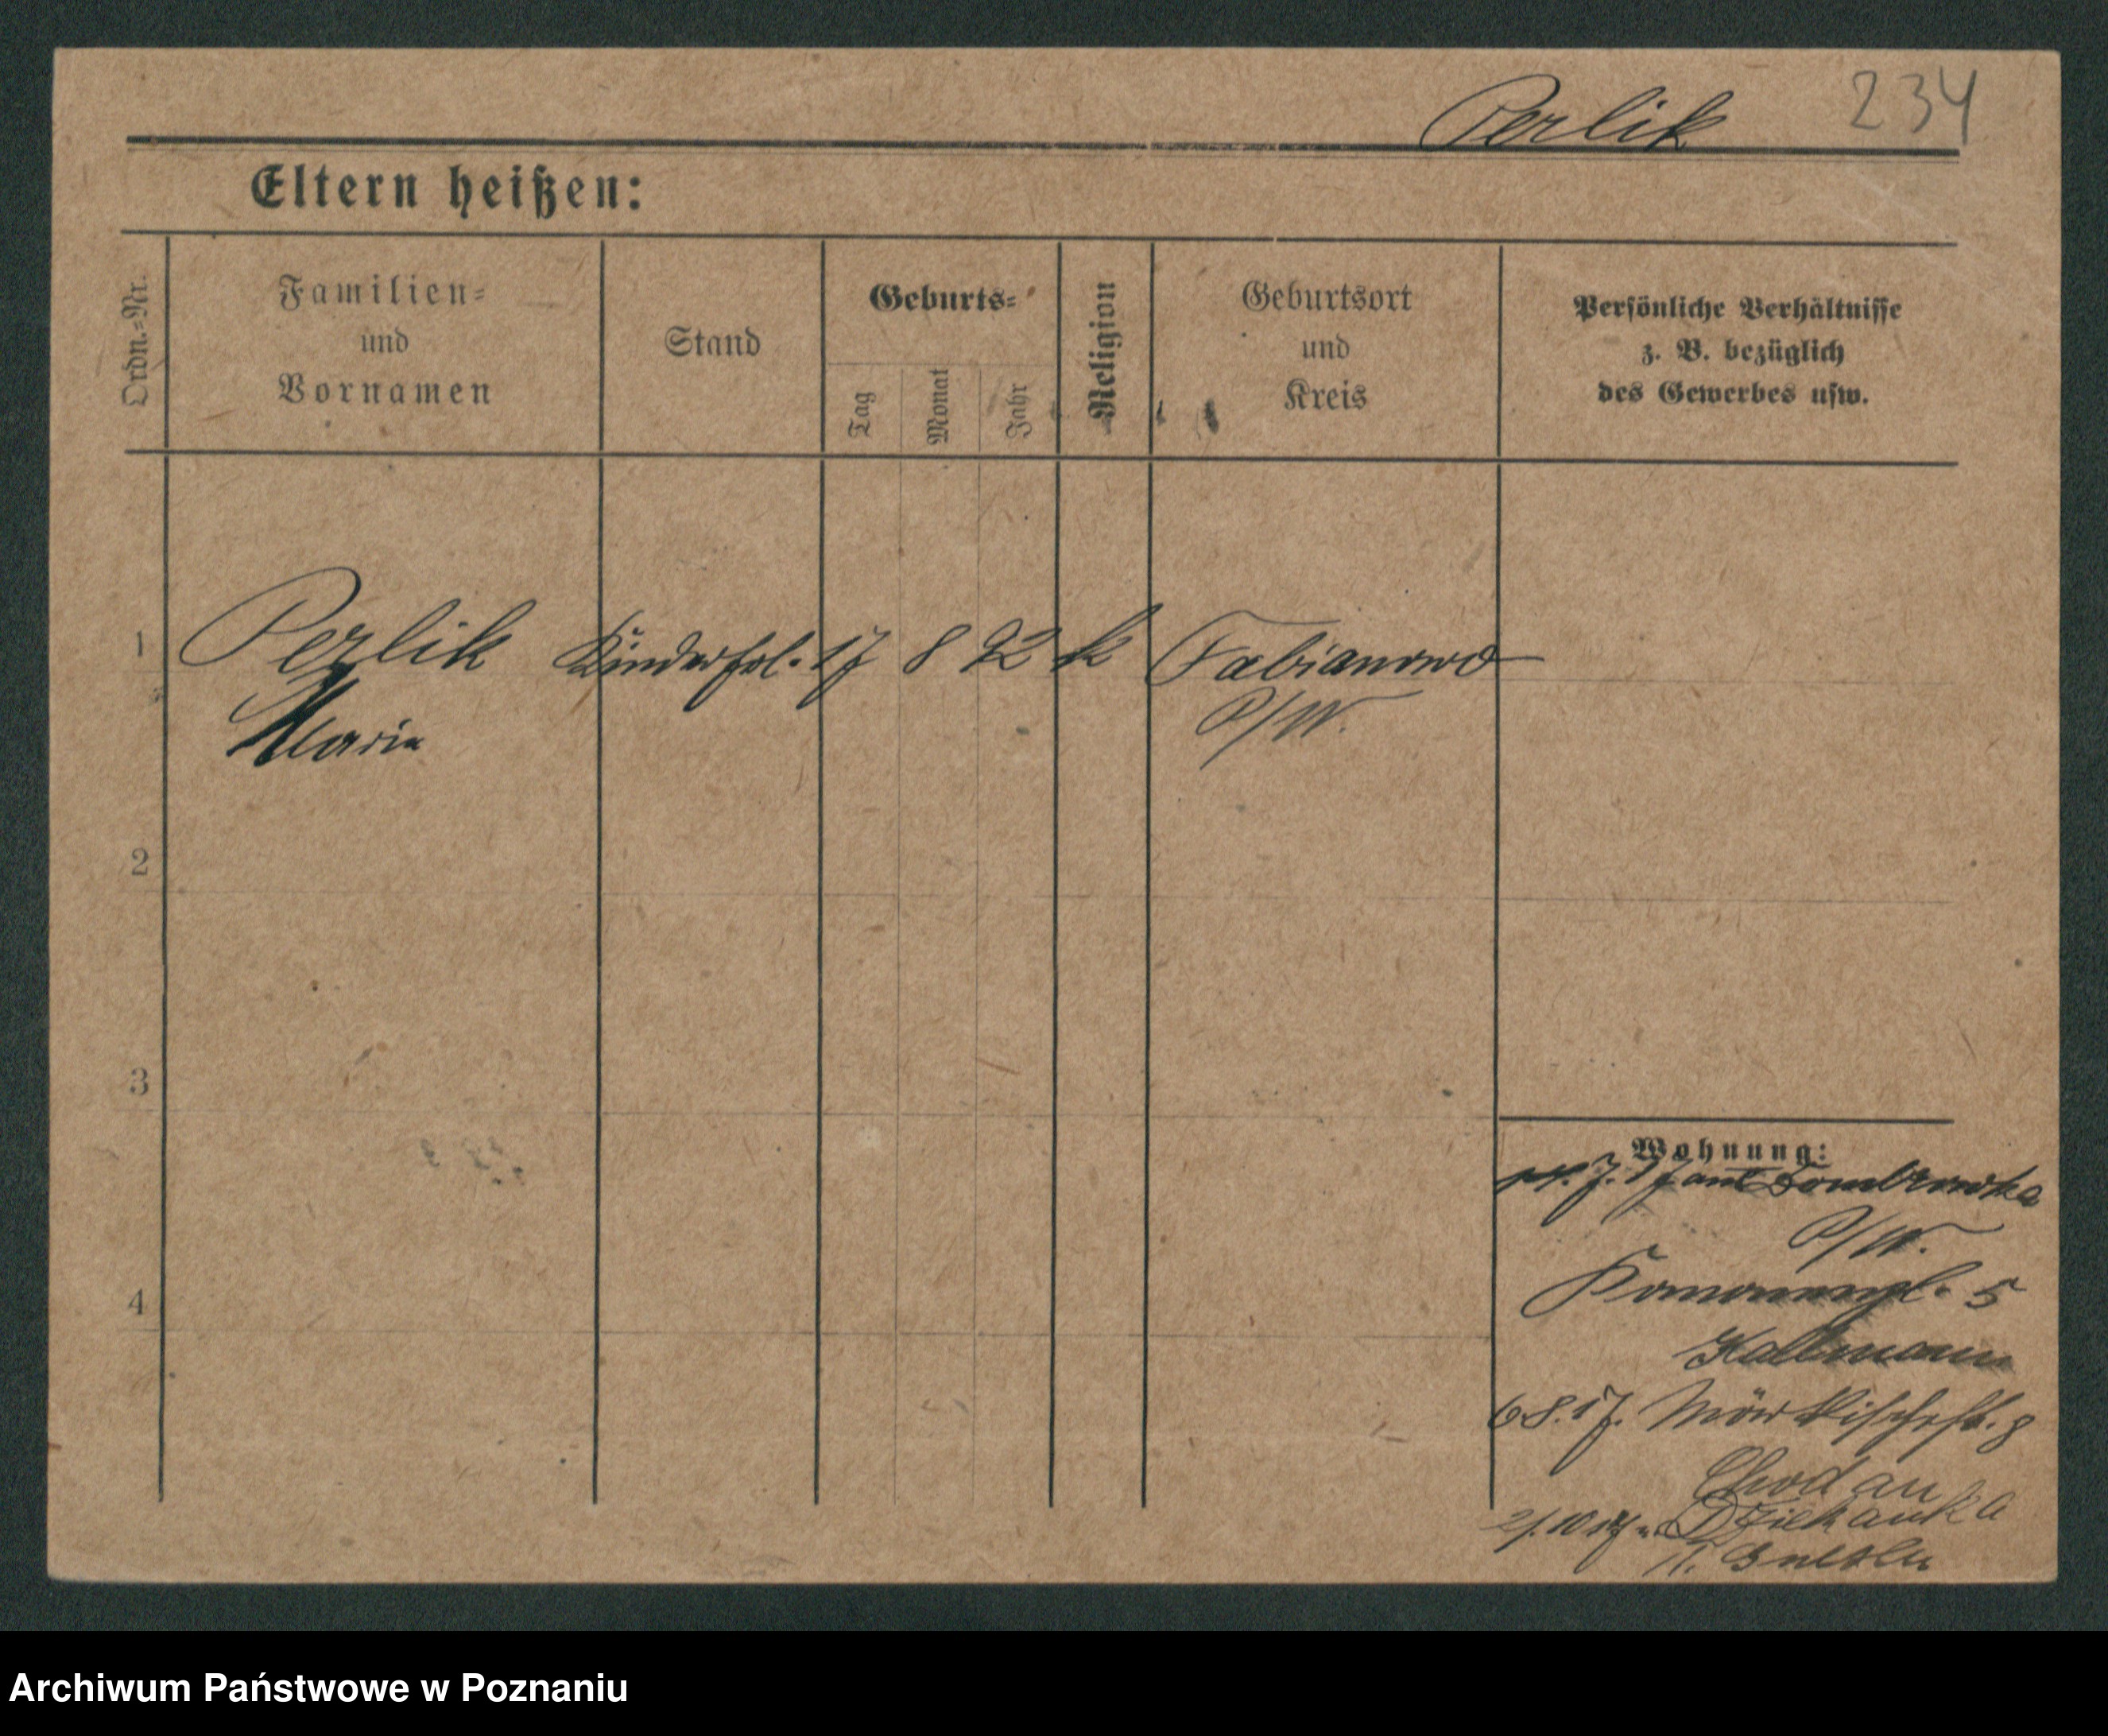 Perlik 234
Eltern heißen:
Ordn.-Nr.
Familien-
und
Vornamen
Stand
Geburts-
Tag
Monat
Jahr
Religion
Geburtsort
und
Kreis
Persönliche Verhältnisse
z. B. bezüglich
des Gewerbes usw.
1 Perlik Kinderfrl. 17 8 92 k Fabianowo
Maria P/W.
2
3
4
Wohnung:
7. 17 aus Dombrowka
P/W.
5
Kallmann
6 8. 17. Märkischestr. 8
Chodan
2/. 10 17 n. Dziekanka
Archiwum Państwowe w Poznaniu